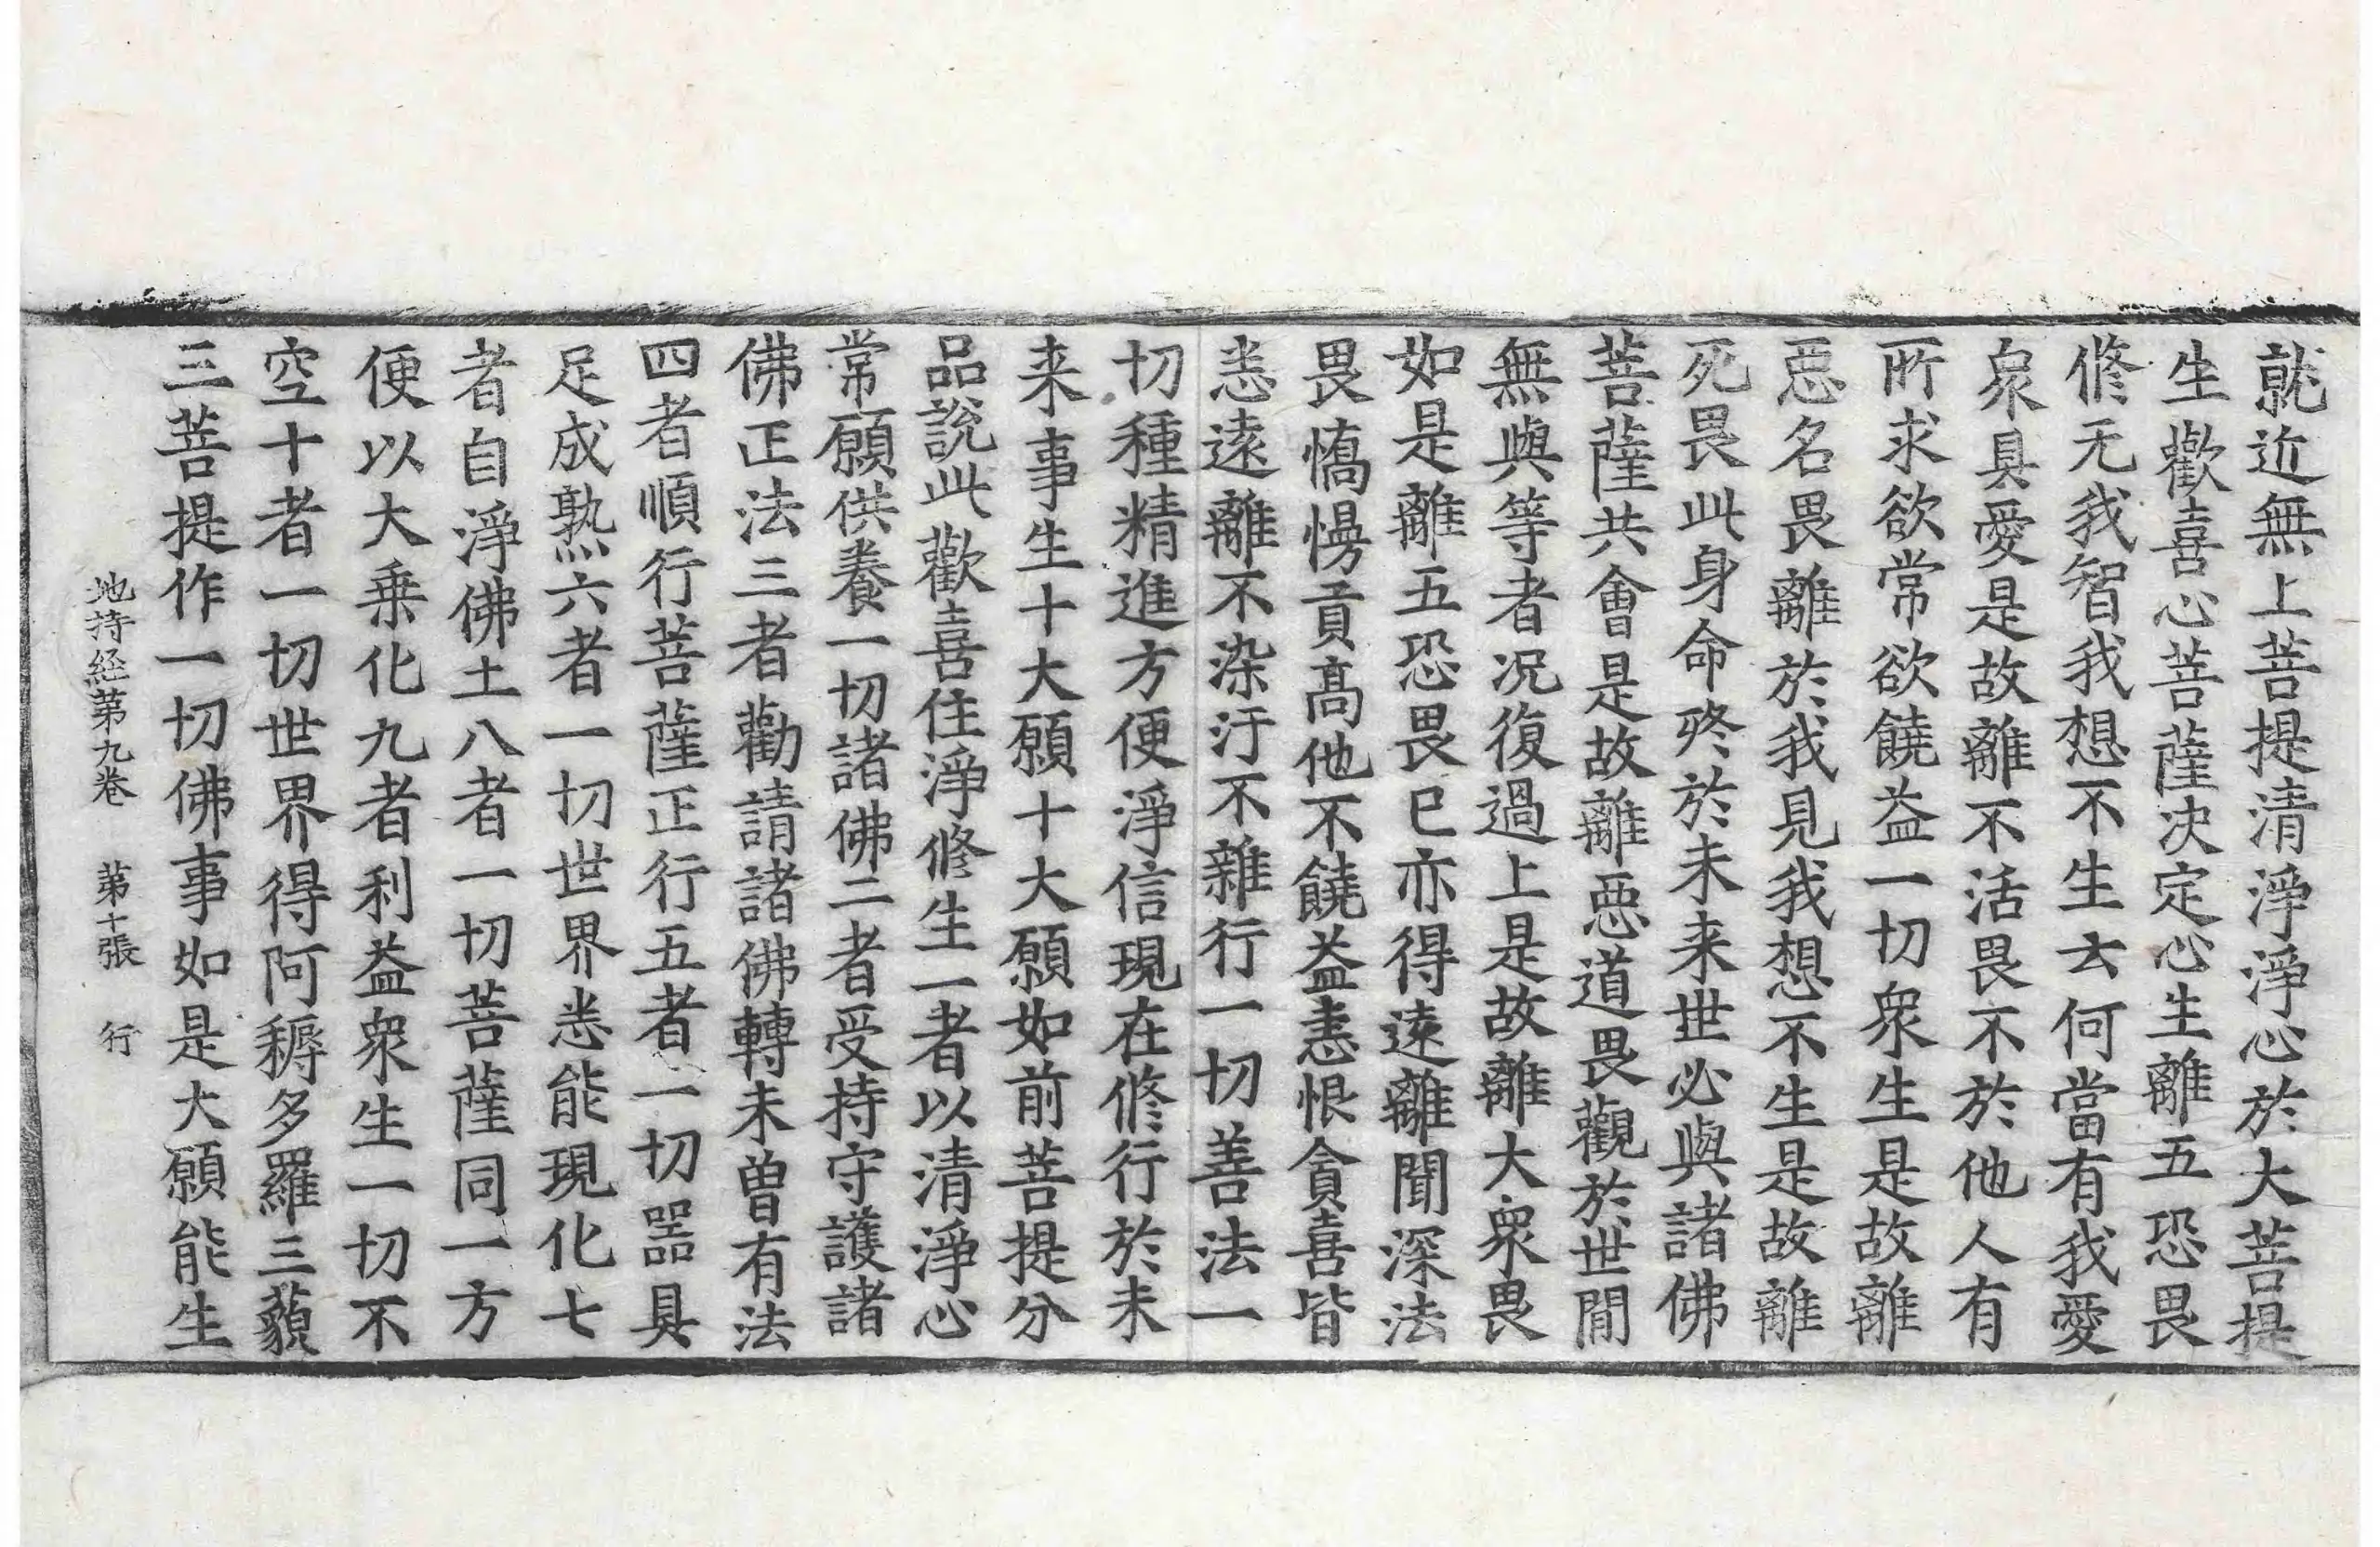 就近無上菩提清淨淨心於大菩提
生歡喜心菩薩决定心生離五恐畏
修无我智我想不生去何當有我愛
衆具愛是故離不活畏不於他人有
所求欲常欲饒益一切衆生是故離
惡名畏離於我見我想不生是故離
死畏此身命終於未来世必與諸佛
菩薩共會是故離惡道畏觀於世閒
無與等者况復過上是故離大衆畏
如是離五恐畏已亦得遠離聞深法
畏憍慢貢高他不饒益恚恨貪喜皆
悉遠離不染汙不雜行一切善法一
切種精進方便淨信現在修行於未
来事生十大願十大願如前菩提分
品說此歡喜住淨修生一者以清淨心
常願供養一切諸佛二者受持守護諸
佛正法三者勸請諸佛轉未曾有法
四者順行菩薩正行五者一切器具
足成熟六者一切世界悉能現化七
者自淨佛土八者一切菩薩同一方
便以大乗化九者利益衆生一切不
空十者一切世界得阿耨多羅三藐
三菩提作一切佛事如是大願能生
地持経第九卷　第十張　行